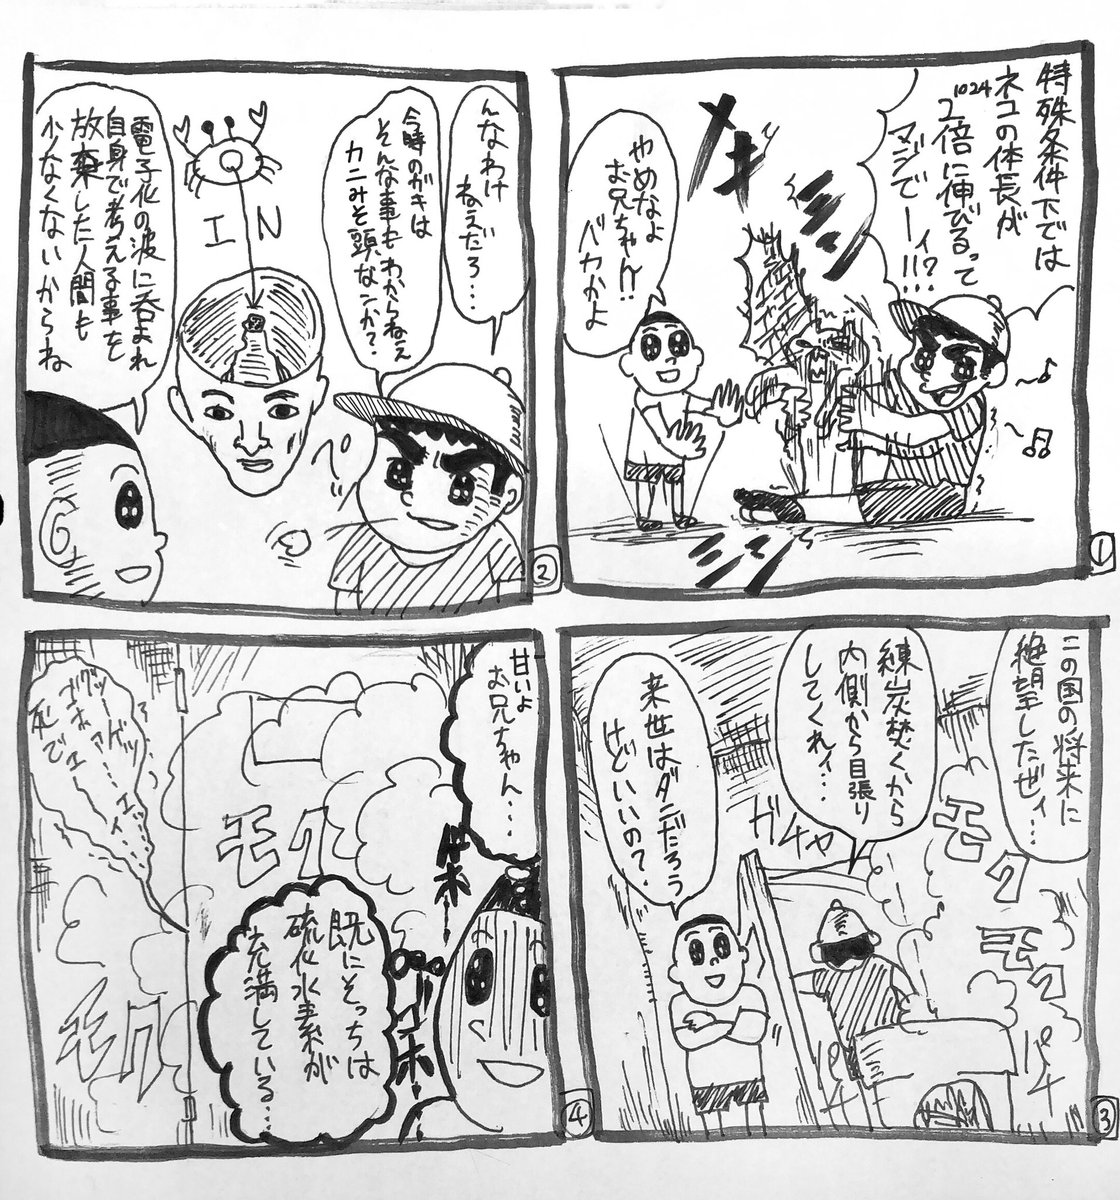 特殊条件下では
ネコの体長が
2¹⁰²⁴倍に伸びるって
マジでーィ!!?
やめなよ
お兄ちゃん!!
バカかよ
メキ
ミシ
ミシ
①
んなわけ
ねえだろ…
今時のガキは
そんな事もわからねえ
カニみそ頭なンか?
IN
電子化の波に呑まれ
自身で考える事を
放棄した人間も
少なくないからね
ペッ
②
この国の将来に
絶望したぜィ…
練炭焚くから
内側から目張り
してくれィ…
来世はダニだろう
けどいいの?
ガチャ
モク
モク
パチ
パチ
③
甘いよ
お兄ちゃん…
既にそっちは
硫化水素が
充満している…
モク
モク
ゴホ
④